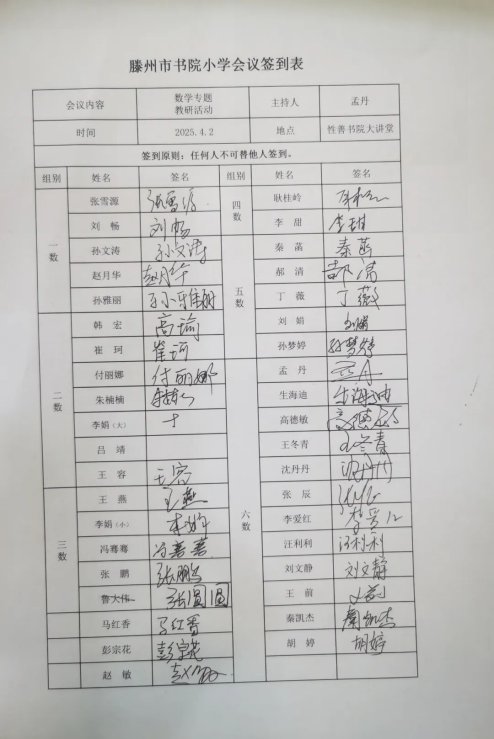 滕州市书院小学会议签到表
会议内容 数学专题教研活动 主持人 孟丹
时间 2025.4.2 地点 性善书院大讲堂
签到原则：任何人不可替他人签到。
组别 姓名 签名 组别 姓名 签名
一数 张雪源 张雪源 四数 耿桂岭
刘畅 刘畅 李甜 李甜
孙文涛 孙文涛 五数 秦菡 秦菡
赵月华 赵月华 郝清 郝清
孙雅丽 孙雅丽 丁薇 丁薇
二数 韩宏 高瑜 刘娟 刘娟
崔珂 崔珂 孙梦婷 孙梦婷
付丽娜 付丽娜 六数 孟丹 孟丹
朱楠楠 生海迪 生海迪
李娟（大） 高德敏 高德敏
吕靖 王冬青 王冬青
王容 王容 沈丹丹 沈丹丹
三数 王燕 王燕 张辰
李娟（小） 李爱红
冯骞骞 汪利利 汪利利
张鹏 张鹏 刘文静 刘文静
鲁大伟 张圆圆 王前
马红香 马红香 秦凯杰 秦凯杰
彭宗花 彭宗花 胡婷 胡婷
赵敏